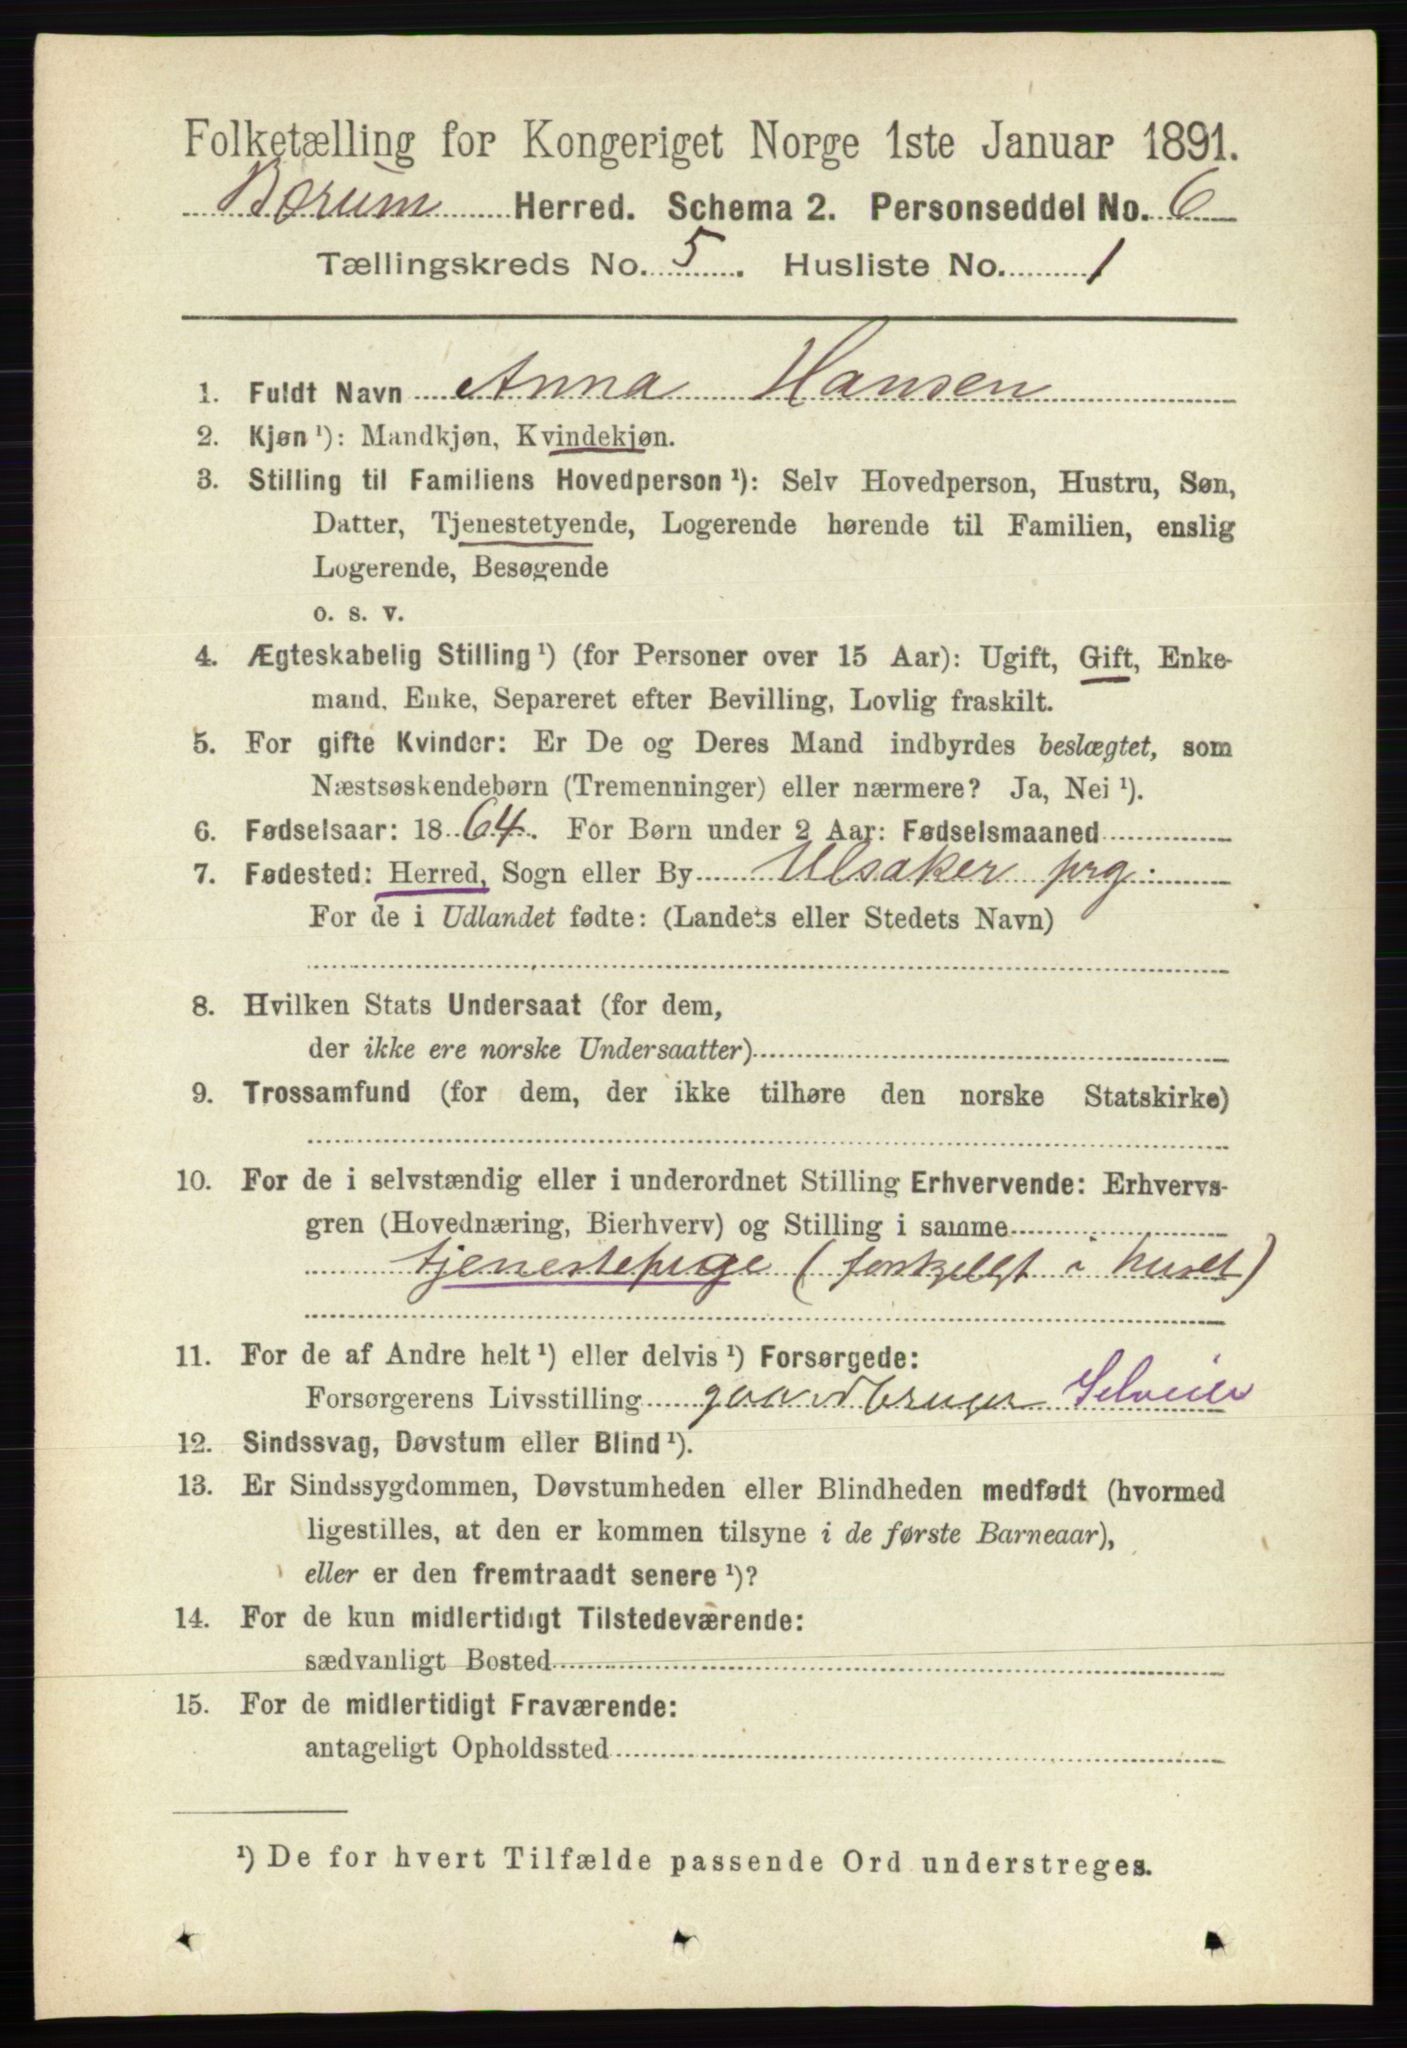 Folketælling for Kongeriget Norge 1ste Januar 1891.
Bærum Herred. Schema 2. Personseddel No. 6
Tællingskreds No. 5. Husliste No. 1
1. Fuldt Navn Anna Hansen
2. Kjøn ¹): Mandkjøn, Kvindekjøn.
3. Stilling til Familiens Hovedperson ¹): Selv Hovedperson, Hustru, Søn,
Datter, Tjenestetyende, Logerende hørende til Familien, enslig
Logerende, Besøgende
o. s. v.
4. Ægteskabelig Stilling ¹) (for Personer over 15 Aar): Ugift, Gift, Enke-
mand, Enke, Separeret efter Bevilling, Lovlig fraskilt.
5. For gifte Kvinder: Er De og Deres Mand indbyrdes beslægtet, som
Næstsøskendebørn (Tremenninger) eller nærmere? Ja, Nei ¹).
6. Fødselsaar: 1864. For Børn under 2 Aar: Fødselsmaaned
7. Fødested: Herred, Sogn eller By Ulsaker prg:
For de i Udlandet fødte: (Landets eller Stedets Navn)
8. Hvilken Stats Undersaat (for dem,
der ikke ere norske Undersaatter)
9. Trossamfund (for dem, der ikke tilhøre den norske Statskirke)
10. For de i selvstændig eller i underordnet Stilling Erhvervende: Erhvervs-
gren (Hovednæring, Bierhverv) og Stilling i samme
tjenestepige (forskjelligt i huset)
11. For de af Andre helt ¹) eller delvis ¹) Forsørgede:
Forsørgerens Livsstilling gaardbruger Selveier
12. Sindssvag, Døvstum eller Blind ¹).
13. Er Sindssygdommen, Døvstumheden eller Blindheden medfødt (hvormed
ligestilles, at den er kommen tilsyne i de første Barneaar),
eller er den fremtraadt senere ¹)?
14. For de kun midlertidigt Tilstedeværende:
sædvanligt Bosted
15. For de midlertidigt Fraværende:
antageligt Opholdssted
¹) De for hvert Tilfælde passende Ord understreges.